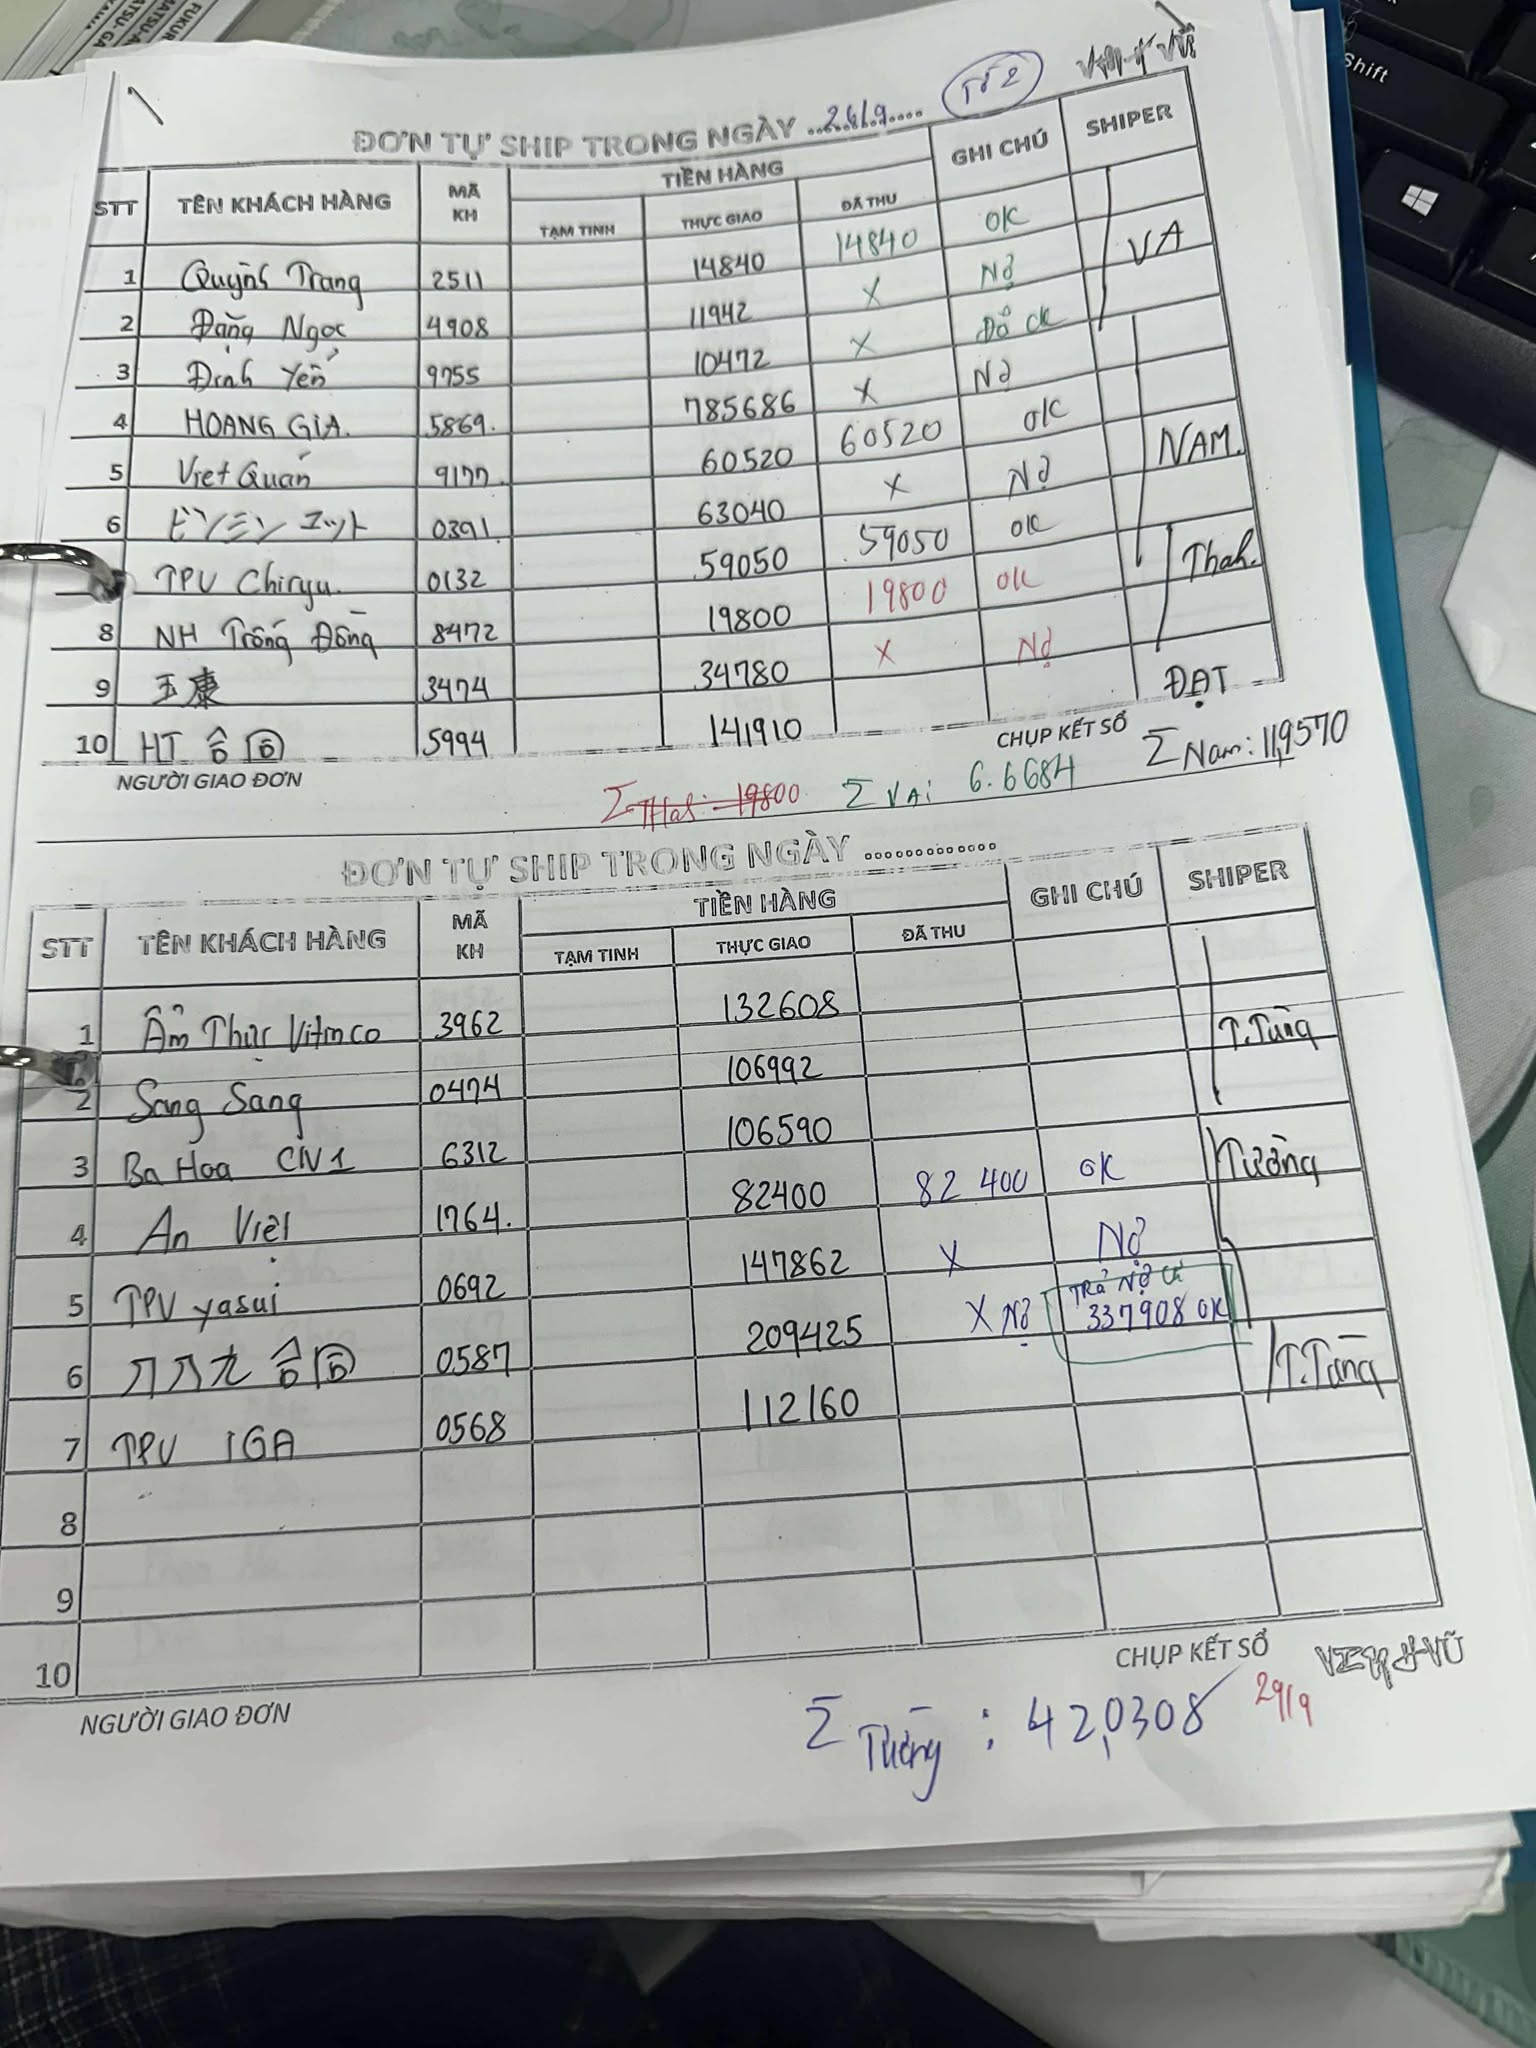 FUKU
MATSU-A
ATSU-GA
Shift
ĐƠN TỰ SHIP TRONG NGÀY ..28/9.... Tờ 2
STT TÊN KHÁCH HÀNG MÃ KH TIỀN HÀNG GHI CHÚ SHIPER
TẠM TINH THỰC GIAO ĐÃ THU
1 Quỳnh Trang 2511 14840 14840 OK
2 Đặng Ngọc 4908 11942 X Nợ VA
3 Định Yến 9755 10472 X Đồ CK
4 HOANG GIA. 5869. 785686 X Nợ
5 Việt Quán 9177 60520 60520 OK NAM.
6 ビンミン ユット 0391 63040 X Nợ
TPV Chiryu 0132 59050 59050 OK
8 NH Trống Đồng 8472 19800 19800 OK Thah.
9 玉康 3474 34780 X Nợ
10 HT 合同 5994 141910 ĐẠT
NGƯỜI GIAO ĐƠN CHỤP KẾT SỔ
Σ Thah: 19800 Σ VA: 6.6684 Σ Nam: 11,9570
ĐƠN TỰ SHIP TRONG NGÀY .............
STT TÊN KHÁCH HÀNG MÃ KH TIỀN HÀNG GHI CHÚ SHIPER
TẠM TINH THỰC GIAO ĐÃ THU
1 Ẩm Thực Vitmco 3962 132608
2 Sang Sang 0474 106992 T.Tùng
3 Ba Hoa CN1 6312 106590
4 An Việt 1764. 82400 82 400 OK Tường
5 TPV yasui 0692 147862 X Nợ
6 八八九 合同 0587 209425 X Nợ Trả Nợ Cũ 337908 OK
7 TPV IGA 0568 112160 T.Tùng
8
9
10
NGƯỜI GIAO ĐƠN CHỤP KẾT SỔ
Σ Tường : 42,0308 29/9